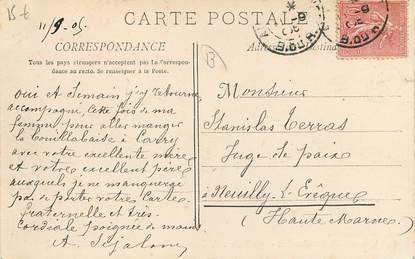 15 t
11/9-05.
CARTE POSTALE
CORRESPONDANCE
Tous les pays étrangers n'acceptent pas la Correspon-
dance au recto. Se renseigner à la Poste.
B
oui et Demain j'y retourne
accompagné cette fois de ma
femme pour aller manger
la bouillabaisse à Carry
avec votre excellente mère
et votre excellent père
auxquels je ne manquerai
pas de porter votre carte.
fraternelle et très
cordiale poignée de main
A.
Monsieur
Stanislas Terras
Juge de paix
à Neuilly-l'Evêque
(Haute Marne)
B. DU R.
B. DU R.